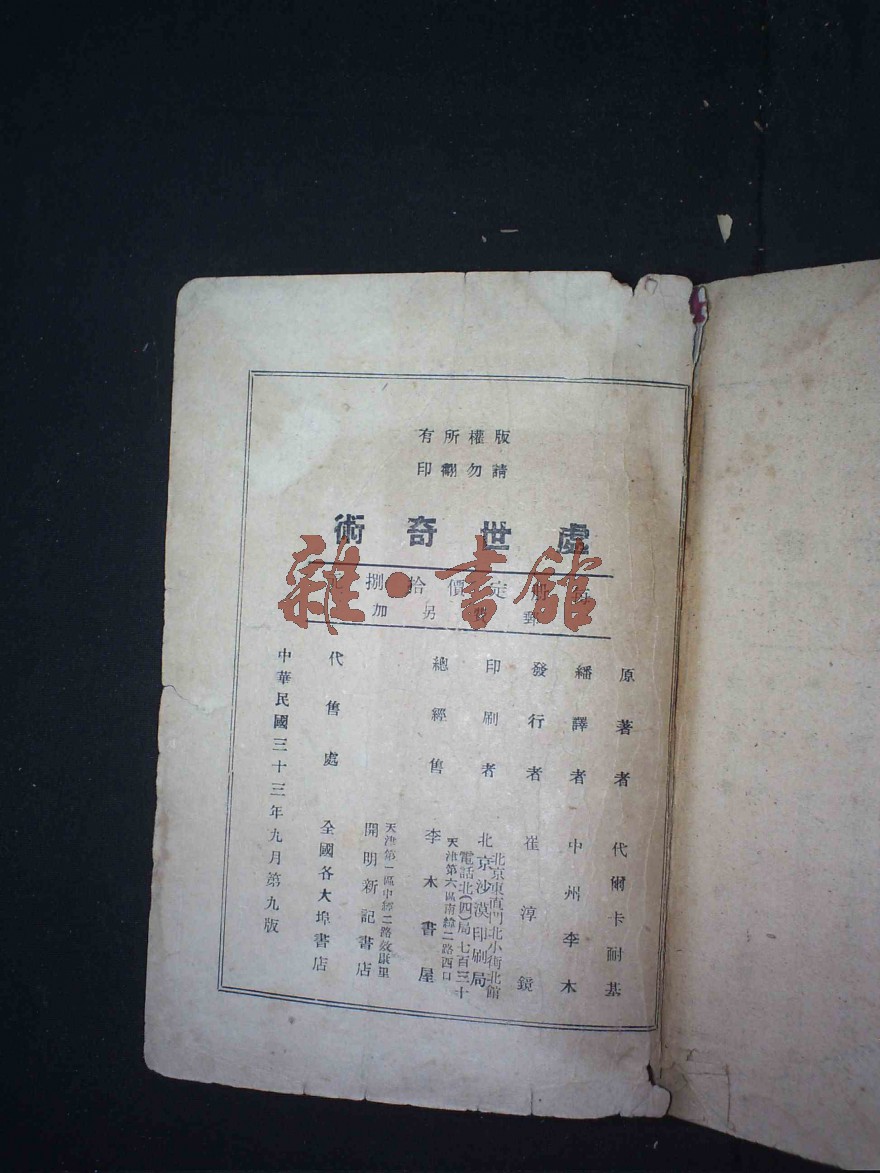 版權所有
請勿翻印
處世奇術
每册定價拾捌元
郵費另加
原著者 代爾卡耐基
繙譯者 中州李木
發行者 崔淳鏡
印刷者 北京沙漠印刷局
北京東直門北小街北館
電話北(四)局七百三十
總經售 李木書屋
天津第六區南緯二路西口
開明新記書店
天津第一區中經二路效康里
代售處 全國各大埠書店
中華民國三十三年九月第九版
雜·書館